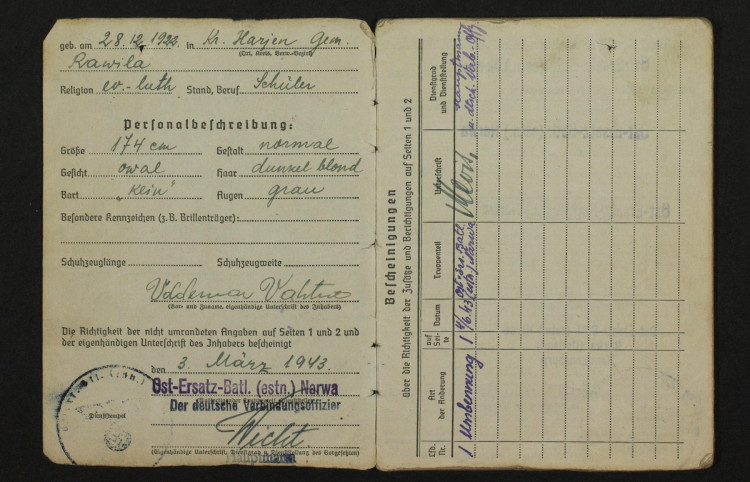 geb. am 28.12.1922 in Kr. Harjen Gem.
(Ort, Kreis, Verw.-Bezirk)
Rawila
Religion ev.-luth Stand, Beruf Schüler
Personalbeschreibung:
Größe 174 cm Gestalt normal
Gesicht owal Haar dunkel blond
Bart "kein" Augen grau
Besondere Kennzeichen (z. B. Brillenträger):
Schuhzeuglänge Schuhzeugweite
(Vor- und Zuname, eigenhändige Unterschrift des Inhabers)
Die Richtigkeit der nicht umrandeten Angaben auf Seiten 1 und 2 und
der eigenhändigen Unterschrift des Inhabers bescheinigt
den 3. März 1943.
Ost-Ersatz-Batl. (estn.) Narwa
Der deutsche Verbindungsoffizier
Dienststempel
(Eigenhändige Unterschrift, Dienstgrad u. Dienststellung des Vorgesetzten)
Hauptmann
Bescheinigungen
über die Richtigkeit der Zusätze und Berichtigungen auf Seiten 1 und 2
Lfd. Nr.
Art der Änderung
auf Seite
Datum
Truppenteil
Unterschrift
Dienstgrad und Dienststellung
1 Umbennung 1 Narwa
Hauptmann